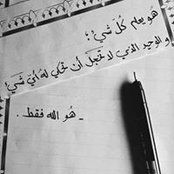 هو يعلم كُل شيء ؛
الوحيد الذي لا تخجل أن تحكي لهُ أي شيء
ـ هُو الله فقط .